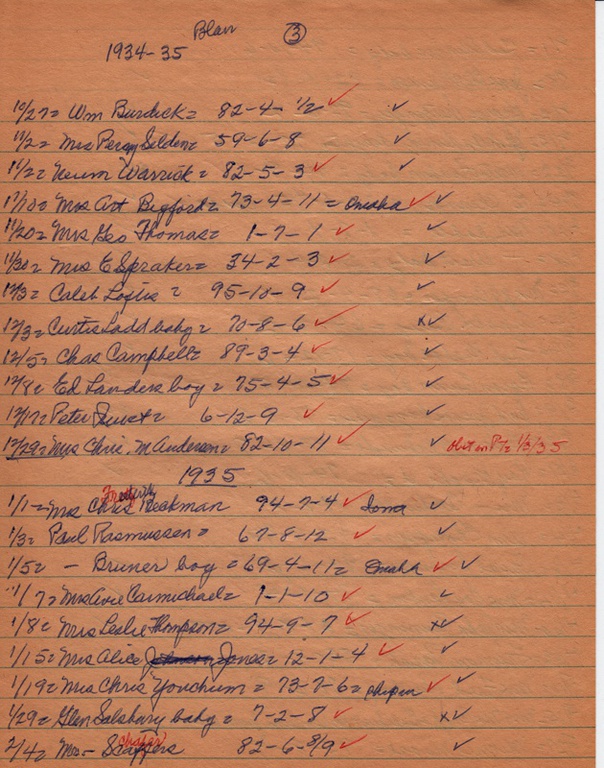 Blair ③
1934-35
10/27= Wm Burdick= 82-4- 1/2 ✓ ✓
11/2= Mrs Percy Selden= 59-6-8 ✓
11/2= Neum Warrick= 82-5-3 ✓ ✓
Mrs Art Bigford= 73-4-11= Omaha ✓ ✓
11/20= Mrs Geo Thomas= 1-7-1 ✓ ✓
11/30= Mrs E Spraker= 34-2-3 ✓ ✓
12/3= Caleb = 95-10-9 ✓ ✓
12/3= Curtis Ladd baby= 70-8-6 ✓ x✓
12/5= Chas Campbell= 89-3-4 ✓ ✓
12/8= Ed Landers boy= 75-4-5 ✓ ✓
12/17= Peter = 6-12-9 ✓ ✓
12/29= Mrs Chris. M Andersen= 82-10-11 ✓ ✓ Obit in 1/3/35
1935
1/1= Mrs Beckman 94-7-4 ✓ Iowa ✓
1/3= Paul Rasmussen= 67-8-12 ✓ ✓
1/5= - Bruner boy=69-4-11= Omaha ✓ ✓
1/7= Mrs Carmichael= 1-1-10 ✓ ✓
1/8= Mrs Leslie Thompson= 94-9-7 ✓ x✓
1/15= Mrs Alice Jones= 12-1-4 ✓ ✓
1/19= Mrs Chris Yonchum= 73-7-6= ✓ ✓
1/29= Glen Salsbury baby= 7-2-8 ✓ x✓
2/4= Mrs- 82-6-8/9 ✓ ✓